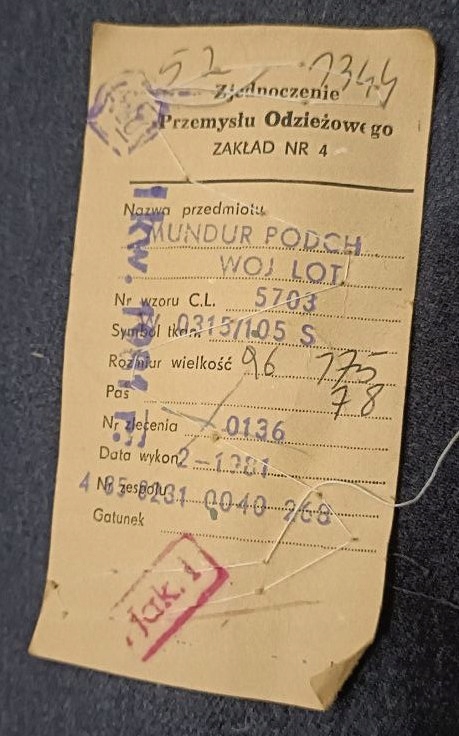 52 1344
Zjednoczenie
Przemysłu Odzieżowego
ZAKŁAD NR 4
Nazwa przedmiotu
MUNDUR PODCH
WOJ LOT
Nr wzoru C.L. 5703
Symbol tkan. W 0315/105 S
Rozmiar wielkość 96 175
Pas 78
Nr zlecenia 0136
Data wykon. 2-1981
Nr zespołu 0231 0040 268
Gatunek
I KW. 1981 r.
Jak. 1